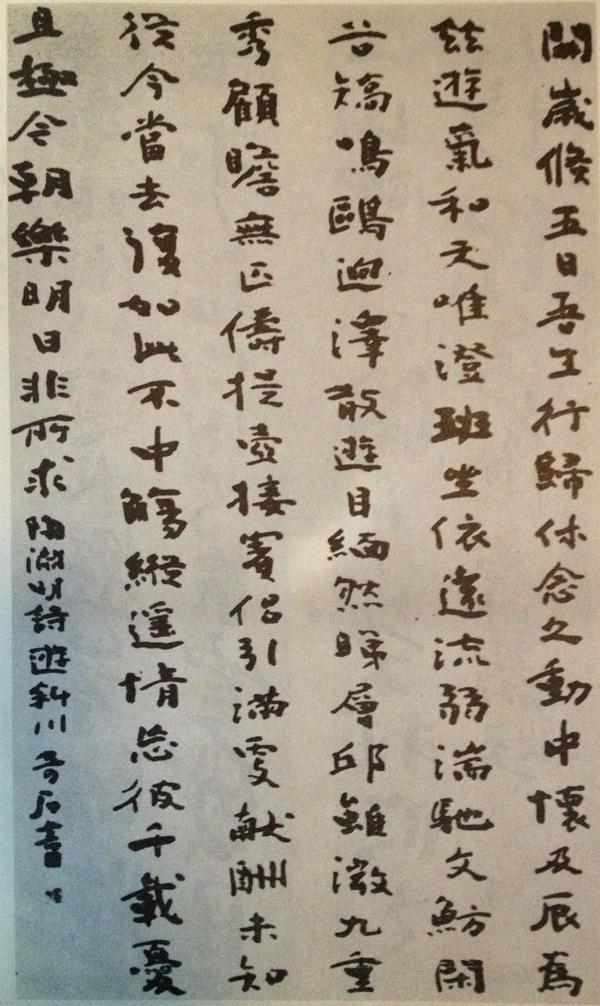 開歲倏五日吾生行歸休念之動中懷及辰為
茲遊氣和天唯澄班坐依遠流弱湍馳文魴閑
谷矯鳴鷗迥澤散遊目緬然睇層邱雖微九重
秀顧瞻無匹儔提壺接賓侶引滿更獻酬未知
從今當去復如此不中觴縱遙情忘彼千載憂
且極今朝樂明日非所求陶淵明詩遊斜川石書